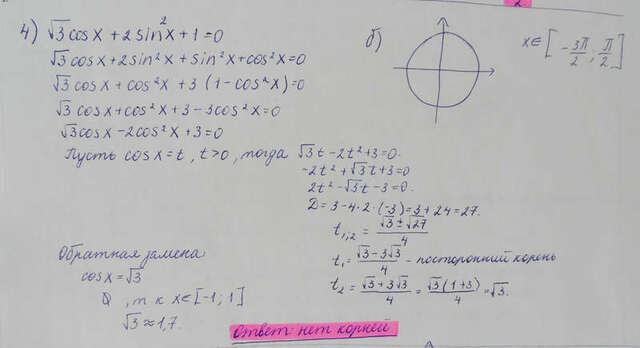 4) √3 cosx + 2sin²x + 1 = 0
√3 cosx + 2sin²x + sin²x + cos²x = 0
√3 cosx + cos²x + 3 (1 - cos²x) = 0
√3 cosx + cos²x + 3 - 3cos²x = 0
√3 cosx - 2cos²x + 3 = 0
Пусть cosx = t, t>0, тогда √3t - 2t² + 3 = 0.
-2t² + √3t + 3 = 0
2t² - √3t - 3 = 0.
D = 3 - 4·2·(-3) = 3 + 24 = 27.
t₁,₂ = (√3 ± √27)/4
t₁ = (√3 - 3√3)/4 - посторонний корень
t₂ = (√3 + 3√3)/4 = √3(1+3)/4 = √3.
Обратная замена
cosx = √3
∅, т к x∈[-1; 1]
√3 ≈ 1,7.
Ответ: нет корней
б)
x∈[-3π/2; π/2]